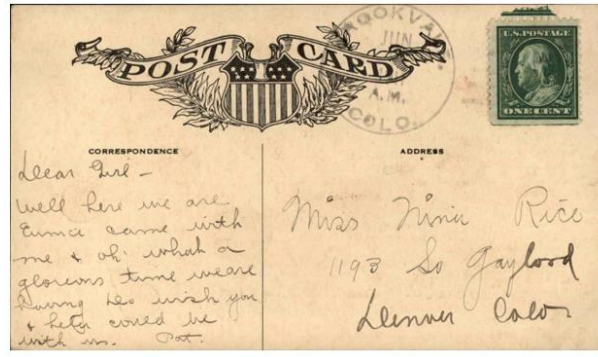 POST CARD
BROOKVALE
JUN
A.M.
COLO.
U.S. POSTAGE
ONE CENT
CORRESPONDENCE
ADDRESS
Dear Girl –
Well here we are
Eunice came with
me & oh! what a
gloreous time we are
having Do wish you
& Letty could be
with us. Pat.
Miss Nina Rice
1193 So Gaylord
Denver Colo